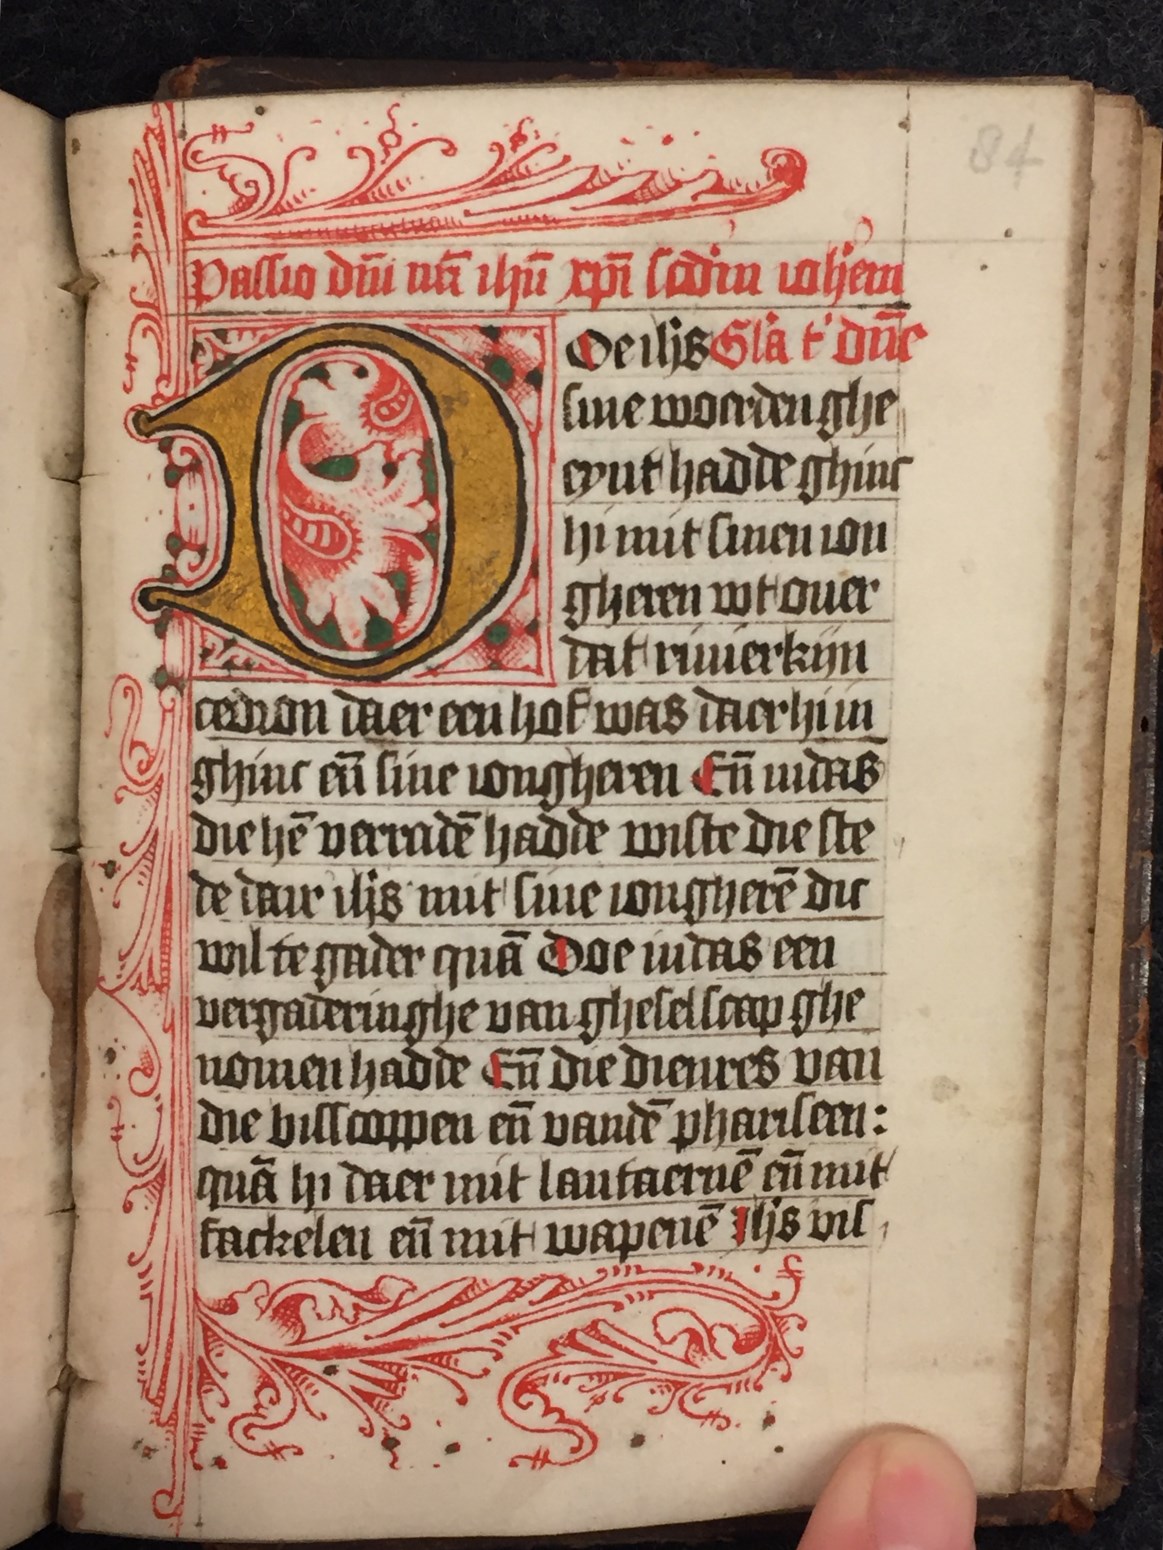 84
Passio dn̄i nr̄i ihū xp̄i scdm iohēm
DOe ihs Gl̄a t' dn̄e
sine woerden ghe
eynt hadde ghinc
hi mit sinen ion
gheren wt ouer
dat riuierkijn
cedron daer een hof was daer hi in
ghinc en̄ sine iongheren En̄ iudas
die hē verradē hadde wiste die ste
de dair ihs mit sine iongherē dic
wil te gader quā Doe iudas een
vergaderinghe van ghesellscap ghe
nomen hadde En̄ die dienres van
die bisscoppen en̄ vandē phariseen:
quā hi daer mit lantaernē en̄ mit
fackelen en̄ mit wapenē Ihs vis